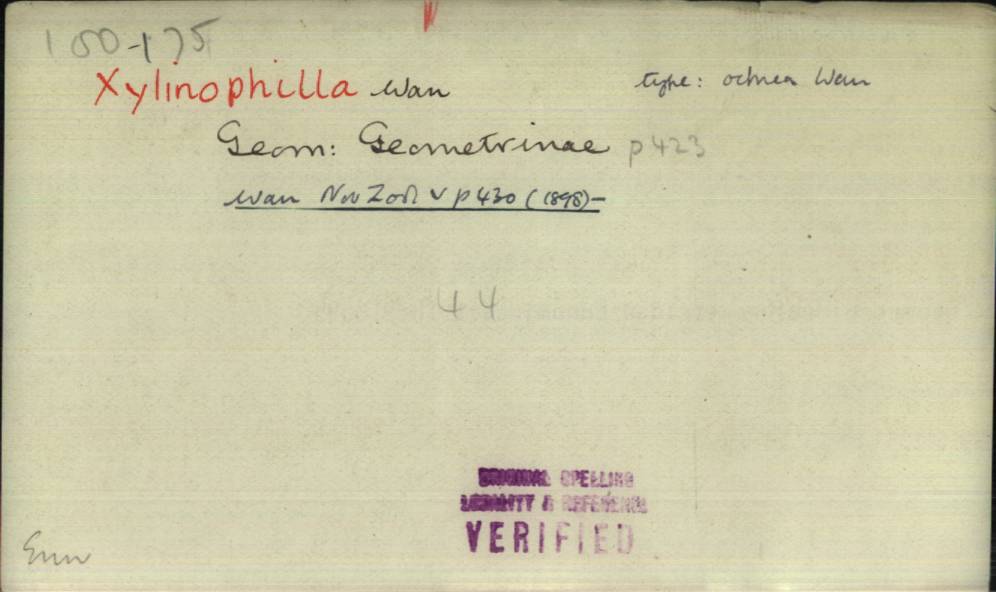 150-175
Xylinophilla Warr type: ochrea Warr
Geom: Geometrinae p423
Warr Nov Zool v p430 (1898)-
44
ORIGINAL SPELLING
LOCALITY & REFERENCE
VERIFIED
Enn